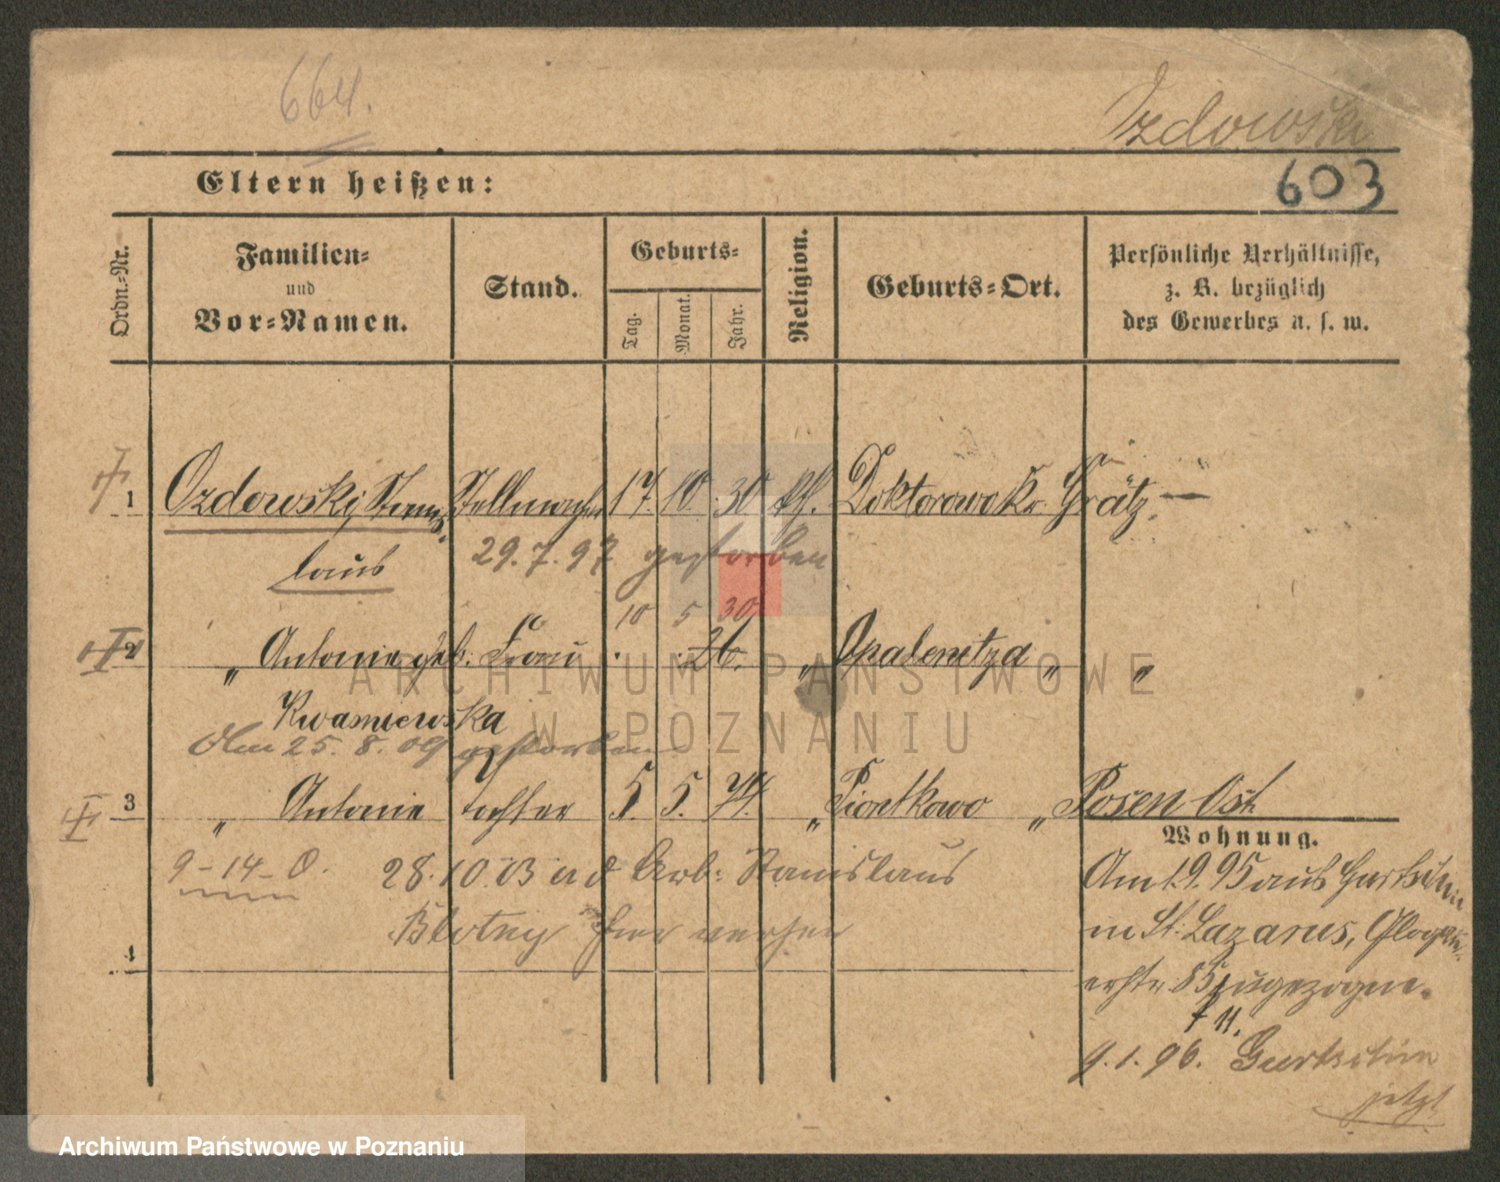 664.
Ozdowski
603
Eltern heißen:
Ordn.-Nr.
Familien-
und
Vor-Namen.
Stand.
Geburts-
Tag.
Monat.
Jahr.
Religion.
Geburts-Ort.
Persönliche Verhältnisse,
z. B. bezüglich
des Gewerbes u. s. w.
1 Ozdowski, Stanis- Stellmacher 17. 10. 30 kth. Doktorowo Kr. Grätz. —
laus
29. 7. 97 gestorben
10 5 30
2 " Antonie geb. Frau 26. " Opalenitza " "
Kwasniewska
Am 25. 8. 09 gestorben
3 " Antonie Tochter 5. 5. 74. " Piontkowo " Posen Ost
Wohnung.
9-14-0. 28.10.03 Arb: Stanislaus
Blotny
4
Am 1.9.95 aus Gurtschin
in St. Lazarus, Glogau-
erstr. 85 zugezogen.
9.1.96. Gurtschin
jetzt
ARCHIWUM PAŃSTWOWE
W POZNANIU
Archiwum Państwowe w Poznaniu